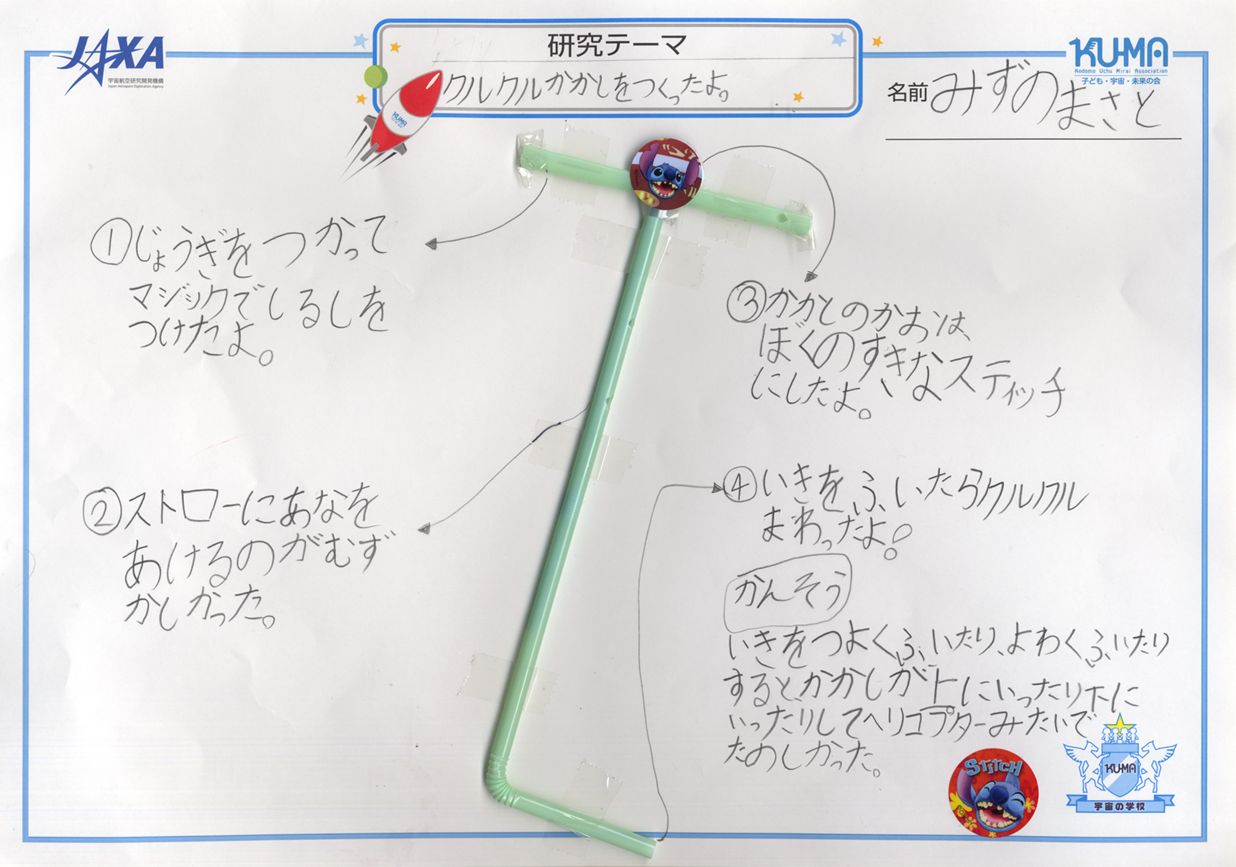 JAXA
宇宙航空研究開発機構
Japan Aerospace Exploration Agency
研究テーマ
クルクルかかしをつくったよ。
KUMA
Kodomo Uchu Mirai Association
子ども・宇宙・未来の会
名前 みずのまさと
KUMA
①じょうぎをつかって
マジックでしるしを
つけたよ。
②ストローにあなを
あけるのがむず
かしかった。
③かかとのかおは、
ぼくのすきなスティッチ
にしたよ。
④いきをふいたらクルクル
まわったよ!
かんそう
いきをつよくふいたり、よわくふいたり
すると、かかしが上にいったり下に
いったりしてヘリコプターみたいで
たのしかった。
STITCH
KUMA
宇宙の学校